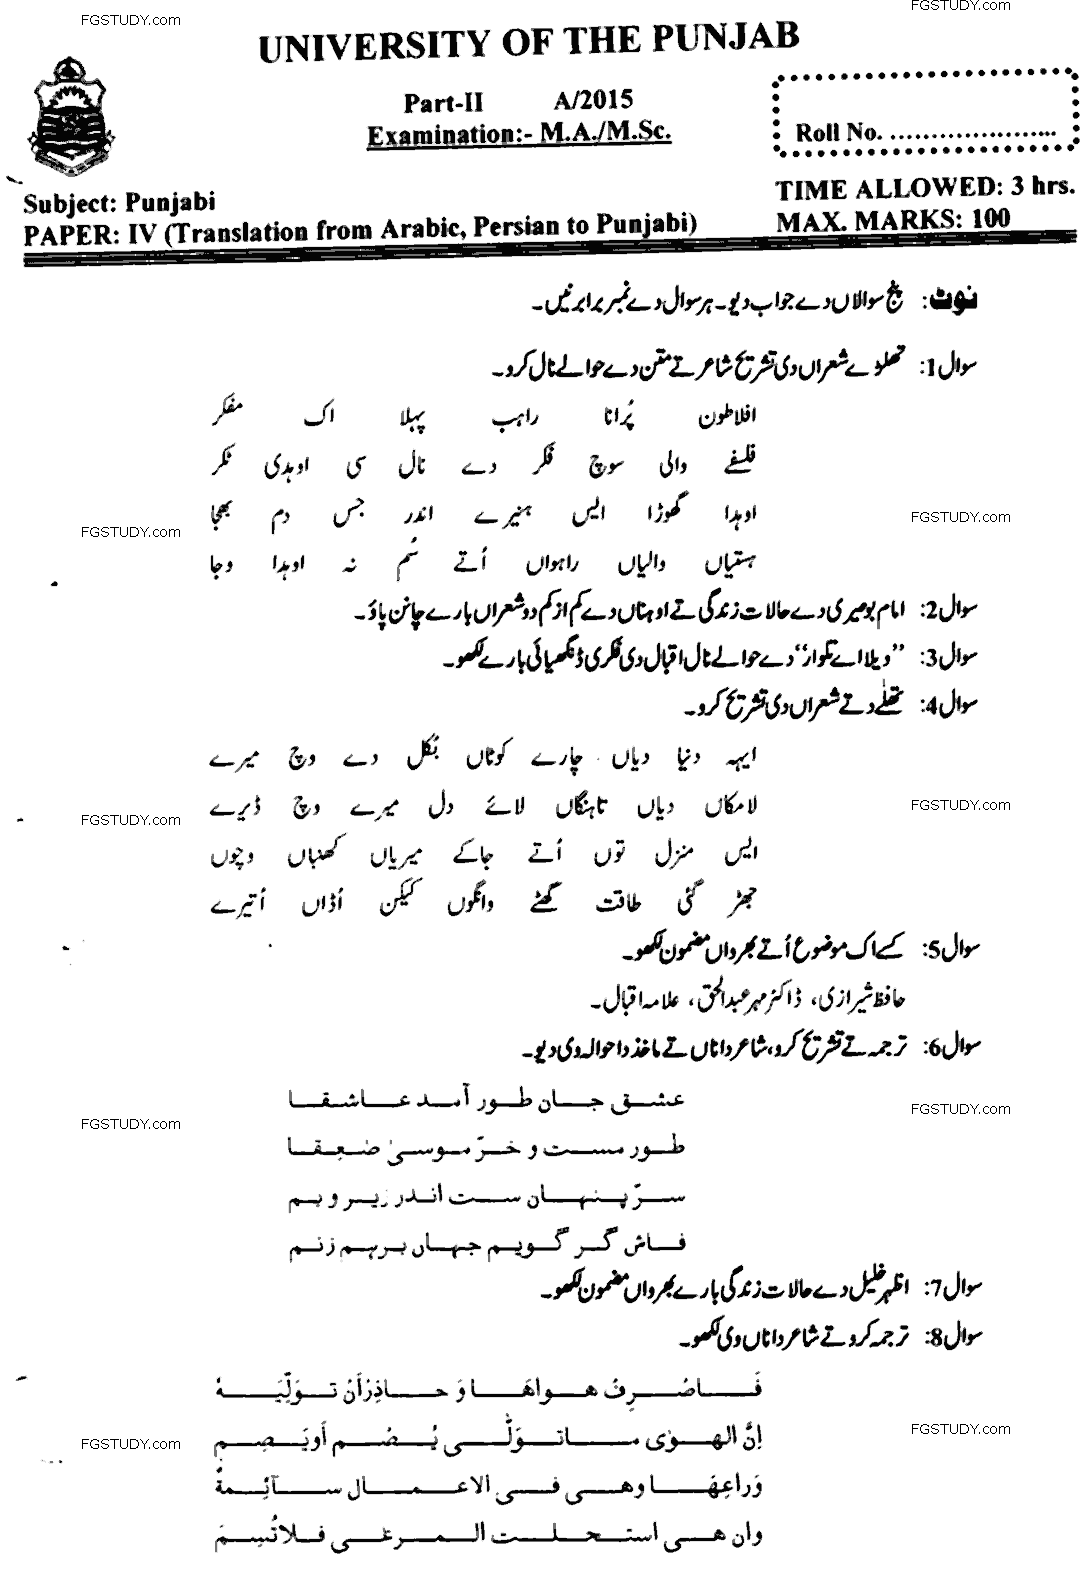 FGSTUDY.com
FGSTUDY.com
UNIVERSITY OF THE PUNJAB
Part-II A/2015
Examination:- M.A./M.Sc.
Roll No. ......................
Subject: Punjabi
TIME ALLOWED: 3 hrs.
PAPER: IV (Translation from Arabic, Persian to Punjabi)
MAX. MARKS: 100
نوٹ: پنج سوالاں دے جواب دیو۔ ہر سوال دے نمبر برابر نیں۔
سوال 1: تھلوے شعراں دی تشریح شاعر تے متن دے حوالے نال کرو۔
افلاطون پُرانا راہب پہلا اک مفکر
فلسفے والی سوچ فکر دے نال سی اوہدی ٹکر
FGSTUDY.com
FGSTUDY.com
اوہدا گھوڑا ایس ہنیرے اندر جس دم بھجا
ہستیاں والیاں راہواں اُتے سُم نہ اوہدا وجا
سوال 2: امام بومیری دے حالات زندگی تے اوہناں دے کم از کم دو شعراں بارے چانن پاؤ۔
سوال 3: "ویلا اے تلوار" دے حوالے نال اقبال دی فکری ڈنگھیائی بارے لکھو۔
سوال 4: تھلے دتے شعراں دی تشریح کرو۔
ایہہ دنیا دیاں چارے کوٹاں بُکل دے وچ میرے
لامکاں دیاں تاہنگاں لائے دل میرے وچ ڈیرے
FGSTUDY.com
FGSTUDY.com
ایس منزل توں اُتے جاکے میریاں کھنباں وچوں
جھڑ گئی طاقت گھٹے وانگوں کیکن اُڈاں اُتیرے
سوال 5: کسے اک موضوع اُتے بھرواں مضمون لکھو۔
حافظ شیرازی، ڈاکٹر مہر عبدالحق، علامہ اقبال۔
سوال 6: ترجمہ تے تشریح کرو، شاعر دا ناں تے ماخذ دا حوالہ وی دیو۔
عشق جان طور آمد عاشقا
FGSTUDY.com
FGSTUDY.com
طور مست و خرّ موسیٰ صٰعِقا
سرّ پنہان ست اندر زیر و بم
فاش گر گویم جہاں برہم زنم
سوال 7: اظہر خلیل دے حالات زندگی بارے بھرواں مضمون لکھو۔
سوال 8: ترجمہ کرو تے شاعر دا ناں وی لکھو۔
فَاصْرِفْ هواهَا وَ حاذِرْ أَنْ تولِّيَهُ
FGSTUDY.com
FGSTUDY.com
اِنَّ الهوٰى ماتولّٰى يُصْم أويَصِم
وَراعِهَا وهى فى الاعمال سآئِمةٌ
وان هى استحلت المرعٰى فلاتُسِمَ